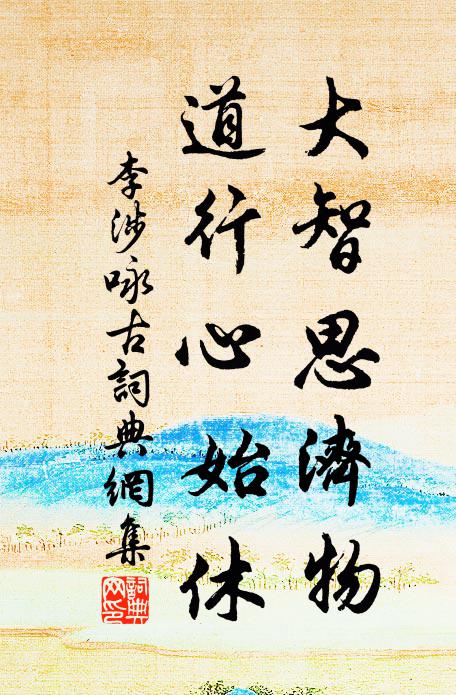 大智思濟物
道行心始休
李涉咏古詞典網集
詞典
网印